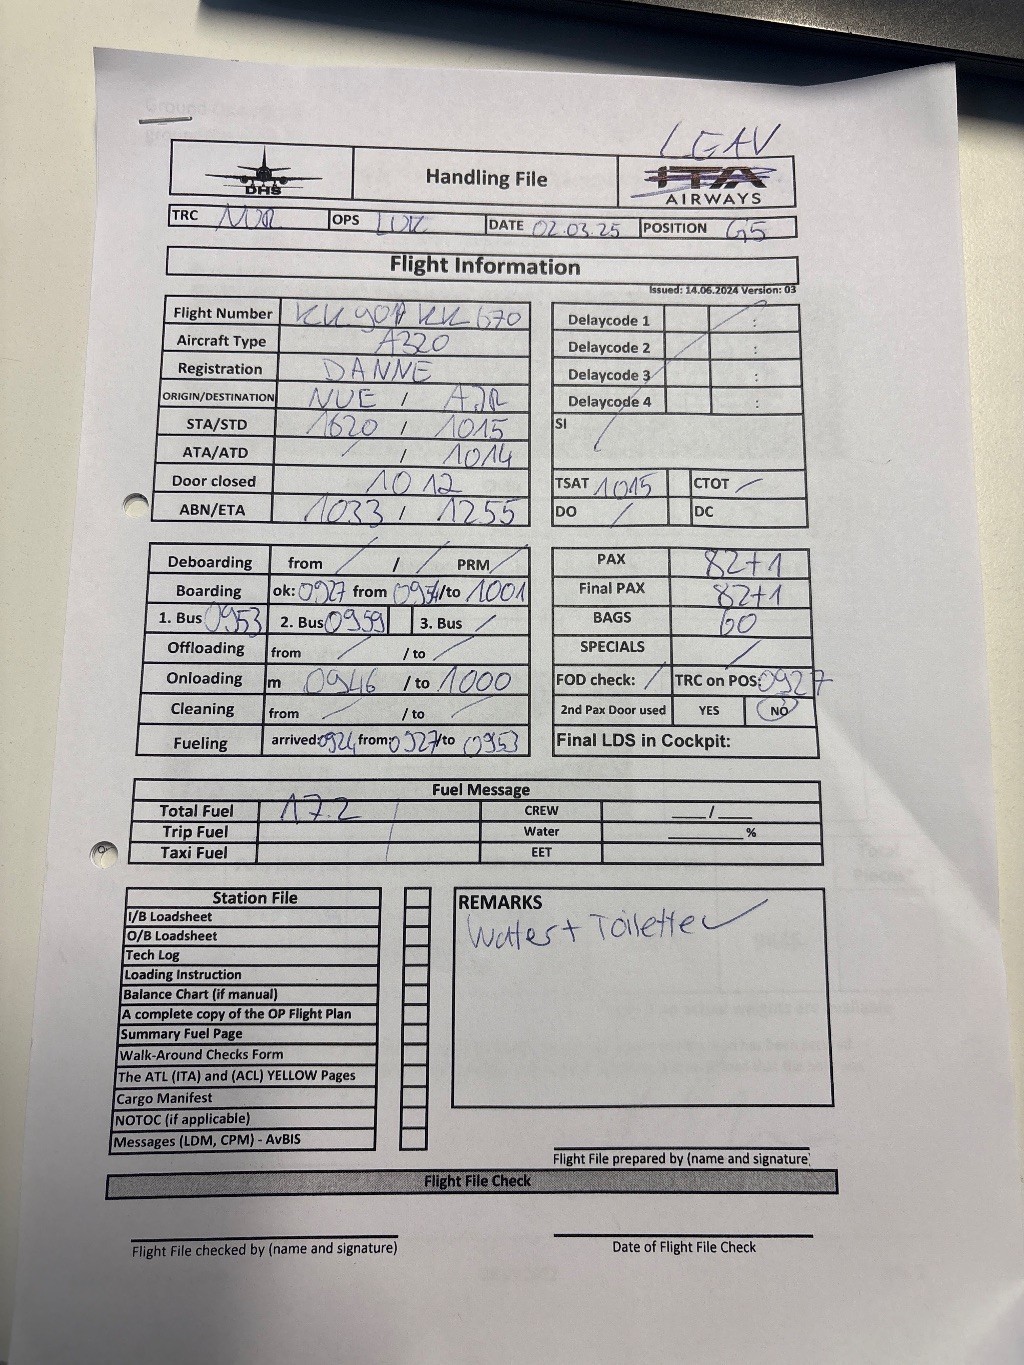 LEAV
DHS
Handling File
ITA
AIRWAYS
TRC MJR OPS LUK DATE 02.03.25 POSITION G5
Flight Information
Issued: 14.06.2024 Version: 03
Flight Number KK 670
Aircraft Type A320
Registration DANNE
ORIGIN/DESTINATION NUE / AJR
STA/STD 1620 / 1015
ATA/ATD / / 1014
Door closed 1012
ABN/ETA 1033 / 1255
Delaycode 1 :
Delaycode 2 :
Delaycode 3 :
Delaycode 4 :
SI /
TSAT 1015 CTOT /
DO / DC
Deboarding from / / / PRM /
Boarding ok: 0927 from /to 1001
1. Bus 0953 2. Bus 0959 3. Bus /
Offloading from / / to /
Onloading m 0946 / to 1000
Cleaning from / / to /
Fueling arrived: 0924 from: 0927 /to 0953
PAX 82+1
Final PAX 82+1
BAGS 60
SPECIALS /
FOD check: / TRC on POS: 0927
2nd Pax Door used YES NO
Final LDS in Cockpit:
Fuel Message
Total Fuel 17.2 CREW ___/___
Trip Fuel Water _______%
Taxi Fuel EET
Station File
I/B Loadsheet
O/B Loadsheet
Tech Log
Loading Instruction
Balance Chart (if manual)
A complete copy of the OP Flight Plan
Summary Fuel Page
Walk-Around Checks Form
The ATL (ITA) and (ACL) YELLOW Pages
Cargo Manifest
NOTOC (if applicable)
Messages (LDM, CPM) - AvBIS
REMARKS
Water + Toilette ✓
Flight File prepared by (name and signature)
Flight File Check
Flight File checked by (name and signature)
Date of Flight File Check